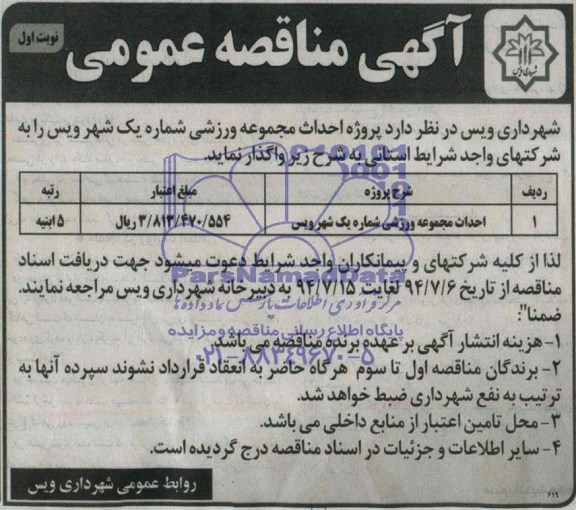 آگهی مناقصه عمومی
نوبت اول
شهرداری ویس
شهرداری ویس در نظر دارد پروژه احداث مجموعه ورزشی شماره یک شهر ویس را به
شرکتهای واجد شرایط استانی به شرح زیر واگذار نماید.
ردیف شرح پروژه مبلغ اعتبار رتبه
۱ احداث مجموعه ورزشی شماره یک شهر ویس ۳/۸۱۳/۴۷۰/۵۵۴ ریال ۵ ابنیه
لذا از کلیه شرکتهای و پیمانکاران واجد شرایط دعوت میشود جهت دریافت اسناد
مناقصه از تاریخ ۹۴/۷/۶ لغایت ۹۴/۷/۱۵ به دبیرخانه شهرداری ویس مراجعه نمایند.
ضمنا":
۱- هزینه انتشار آگهی بر عهده برنده مناقصه می باشد.
۲- برندگان مناقصه اول تا سوم هرگاه حاضر به انعقاد قرارداد نشوند سپرده آنها به
ترتیب به نفع شهرداری ضبط خواهد شد.
۳- محل تامین اعتبار از منابع داخلی می باشد.
۴- سایر اطلاعات و جزئیات در اسناد مناقصه درج گردیده است.
روابط عمومی شهرداری ویس
۶۱۹
ParsNamadData
مرکز فرآوری اطلاعات پارس نماد داده ها
پایگاه اطلاع رسانی مناقصه و مزایده
۰۲۱-۸۸۳۴۹۶۷۰-۵